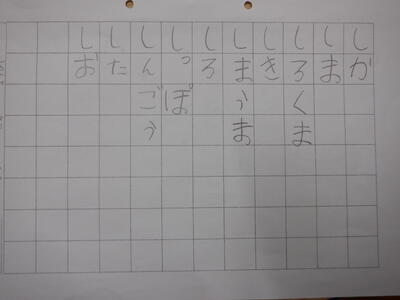 しか
しま
しろくま
しき
しまうま
しろ
しっぽ
しんごう
した
しお